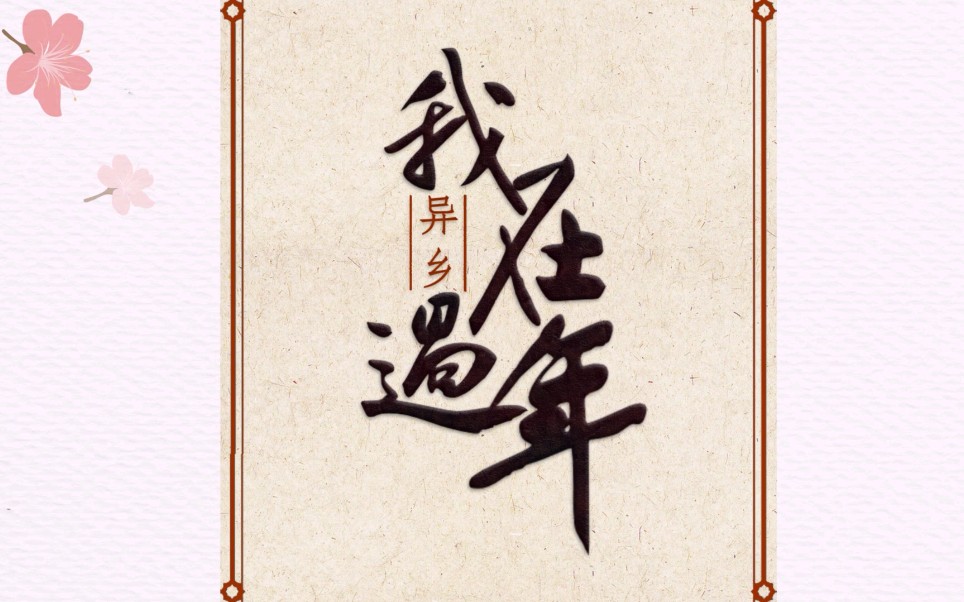 我在
异乡
過年